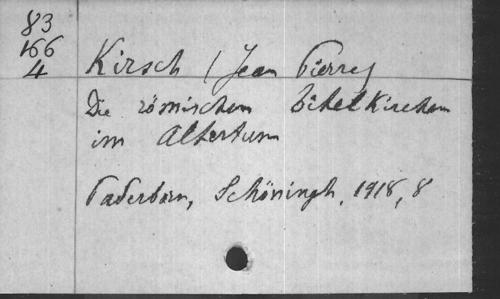 83
166
4
Kirsch (Jean Pierre)
Die römischen Titelkirchen
im Altertum
Paderborn, Schöningh, 1918, 8